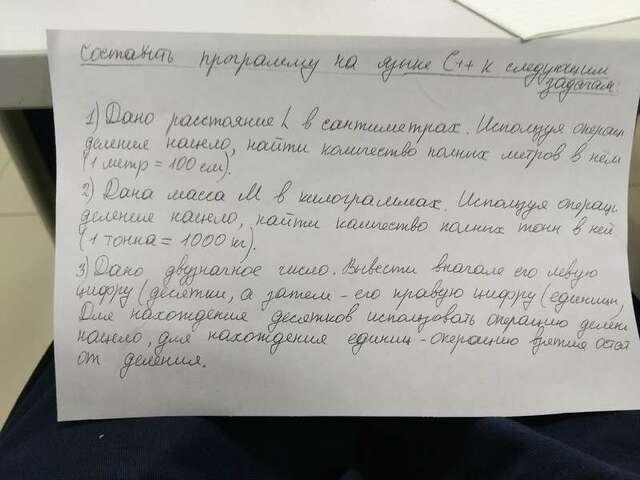 Составить программу на языке C++ к следующим
задачам:
1) Дано расстояние L в сантиметрах. Используя операц
деления нацело, найти количество полных метров в нём
(1 метр = 100 см).
2) Дана масса M в килограммах. Используя операци
деления нацело, найти количество полных тонн в ней
(1 тонна = 1000 кг).
3) Дано двузначное число. Вывести вначале его левую
цифру (десятки, а затем - его правую цифру (единицы)
Для нахождения десятков использовать операцию делен
нацело, для нахождения единиц - операцию взятия остат
от деления.